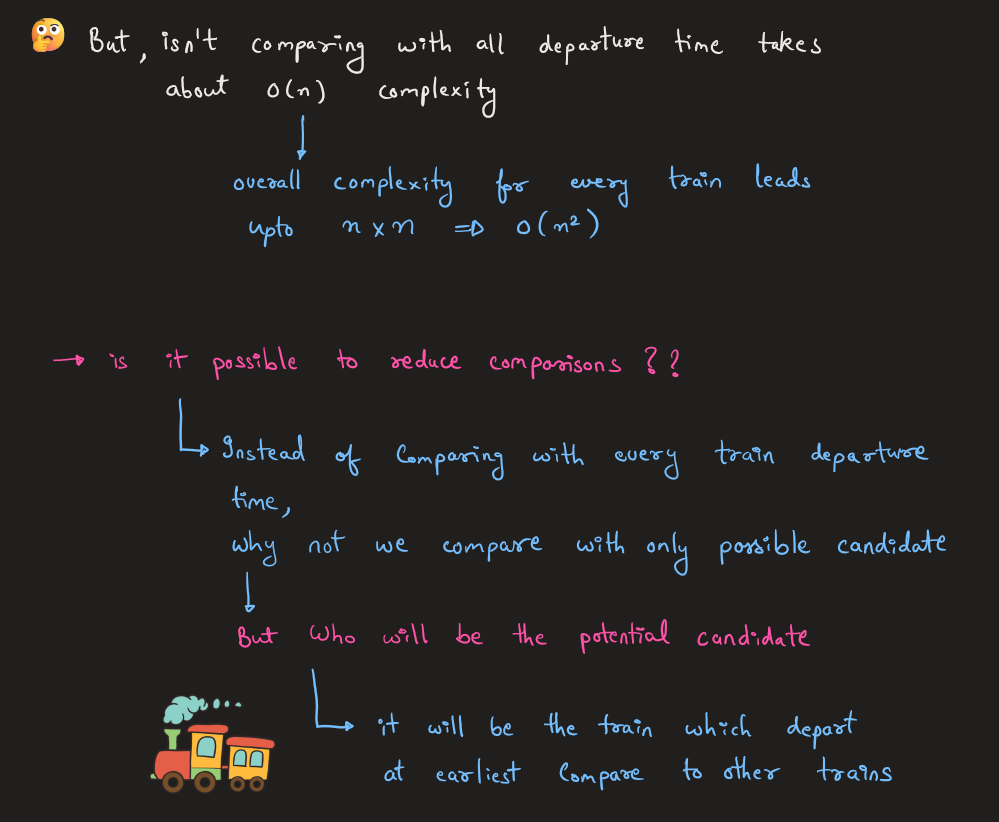 But, isn't comparing with all departure time takes
about O(n) complexity
overall complexity for every train leads
upto n x n => O(n²)
→ is it possible to reduce comparisons ??
Instead of Comparing with every train departure
time,
why not we compare with only possible candidate
But Who will be the potential candidate
it will be the train which depart
at earliest Compare to other trains